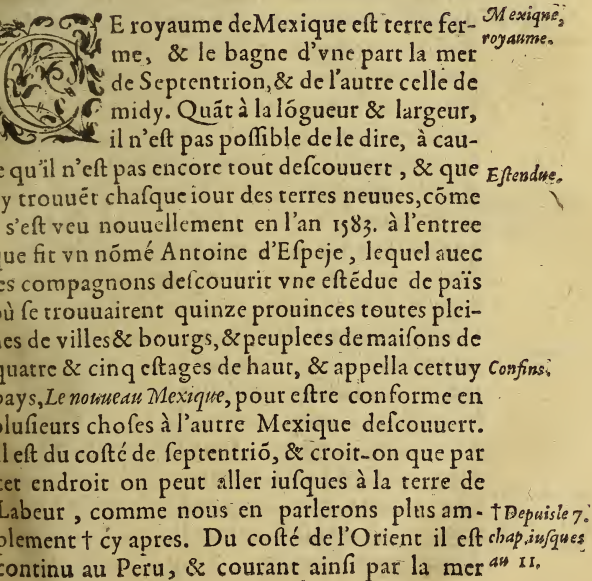 CE royaume de Mexique eſt terre fer-
me, & le bagne d'vne part la mer
de Septentrion, & de l'autre celle de
midy. Quāt à la lógueur & largeur,
il n'eſt pas poſſible de le dire, à cau-
e qu'il n'eſt pas encore tout deſcouuert, & que
y trouuēt chaſque iour des terres neuues, cōme
s'eſt veu nouuellement en l'an 1583. à l'entree
ue fit vn nómé Antoine d'Eſpeje, lequel auec
es compagnons deſcouurit vne eſtédue de païs
où ſe trouuairent quinze prouinces toutes plei-
nes de villes & bourgs, & peuplees de maiſons de
quatre & cinq eſtages de haut, & appella cettuy
pays, Le nouueau Mexique, pour eſtre conforme en
pluſieurs choſes à l'autre Mexique deſcouuert.
Il eſt du coſté de ſeptentriō, & croit-on que par
cet endroit on peut aller iuſques à la terre de
Labeur, comme nous en parlerons plus am-
plement † cy apres. Du coſté de l'Orient il eſt
continu au Peru, & courant ainſi par la mer
Mexique,
royaume.
Eſtendue.
Confins.
† Depuis le 7.
chap. iuſques
au 11.